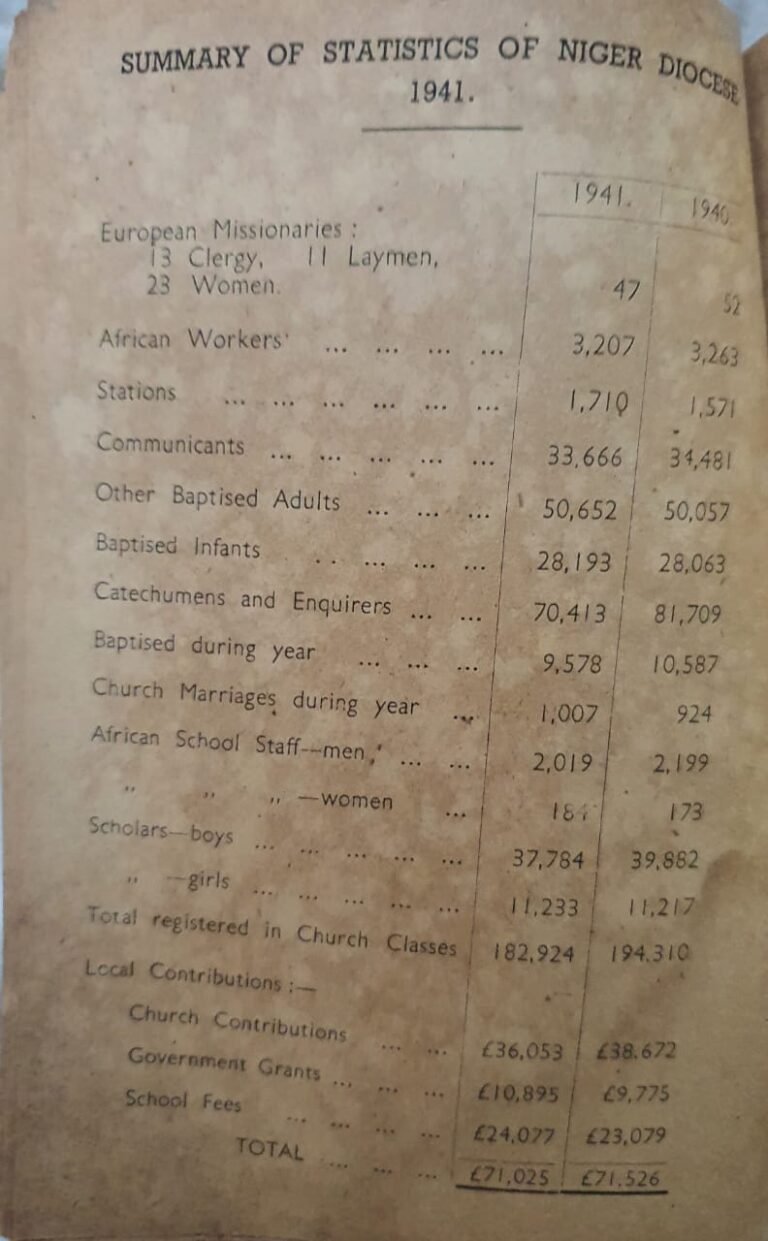 SUMMARY OF STATISTICS OF NIGER DIOCESE
1941.
1941. 1940
European Missionaries :
13 Clergy, 11 Laymen,
23 Women. 47 52
African Workers ... ... ... ... 3,207 3,263
Stations ... ... ... ... ... ... 1,710 1,571
Communicants ... ... ... ... ... 33,666 34,481
Other Baptised Adults ... ... ... 50,652 50,057
Baptised Infants .. ... ... ... 28,193 28,063
Catechumens and Enquirers ... ... 70,413 81,709
Baptised during year ... ... ... 9,578 10,587
Church Marriages during year ... 1,007 924
African School Staff—men, ... ... 2,019 2,199
,, ,, ,, —women ... 173
Scholars—boys ... ... ... ... ... 37,784 39,882
,, —girls ... ... ... ... ... 11,233 11,217
Total registered in Church Classes 182,924 194.310
Local Contributions :—
Church Contributions ... ... £36,053 £38.672
Government Grants ... ... ... £10,895 £9,775
School Fees ... ... ... ... £24,077 £23,079
TOTAL ... ... ... £71,025 £71.526